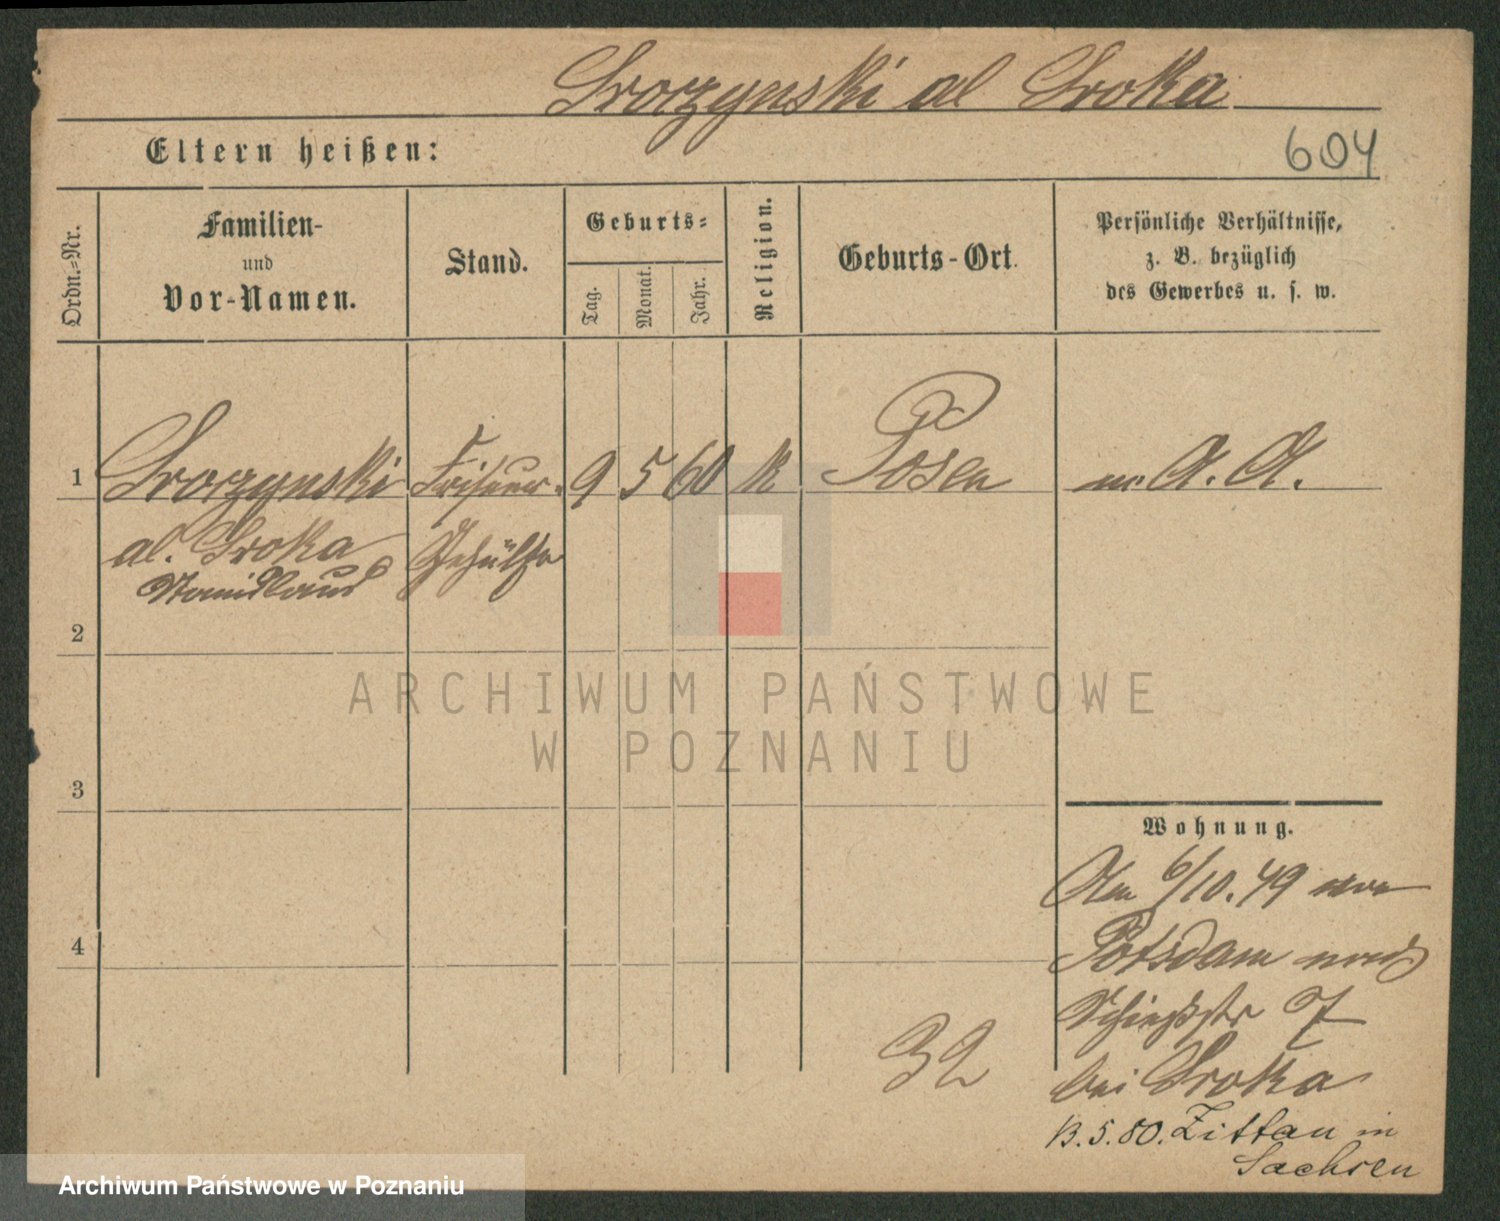 Sroczynski al Sroka
604
Eltern heißen:
Ordn.=Nr.
Familien-
und
Vor-Namen.
Stand.
Geburts=
Tag.
Monat.
Jahr.
Religion.
Geburts-Ort.
Persönliche Verhältnisse,
z. B. bezüglich
des Gewerbes u. s. w.
1 Sroczynski Friseur- 9 5 60 K Posen A. A.
al. Sroka Gehülfe
Stanislaus
2
3
4
ARCHIWUM PAŃSTWOWE
W POZNANIU
Wohnung.
Am 6/10.79 von
Potsdam nach
Schießstr 7
bei Sroka
32
13.5.80. Zittau in
Sachsen
Archiwum Państwowe w Poznaniu